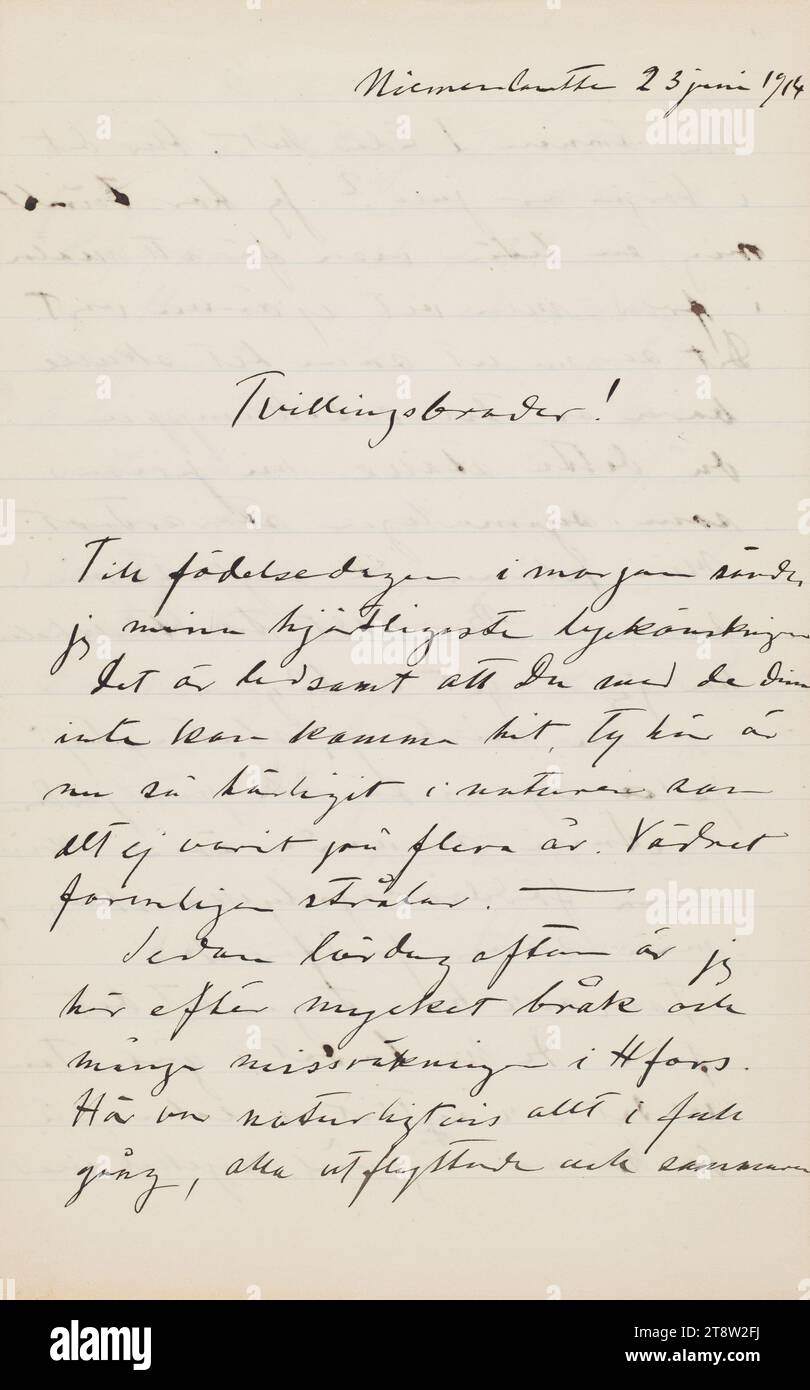 Niemenlautta 23 juni 1914
Tvillingsbroder!
Till födelsedagen i morgon sänder
jg mina hjärtligaste lyckönskningar
Det är ledsamt att Du med de dina
inte kan komma hit, Ty här är
nu så härligt i naturen som
det ej varit på flera år. Vädret
formligen strålar. —
Sedan lördag afton är jg
här efter mycket bråk och
många missräkningar i Hfors.
Här var naturligtvis allt i full
gång, alla utflyttade och sommaren
alamy
alamy
alamy
alamy
alamy
Image ID: 2T8W2FJ
www.alamy.com